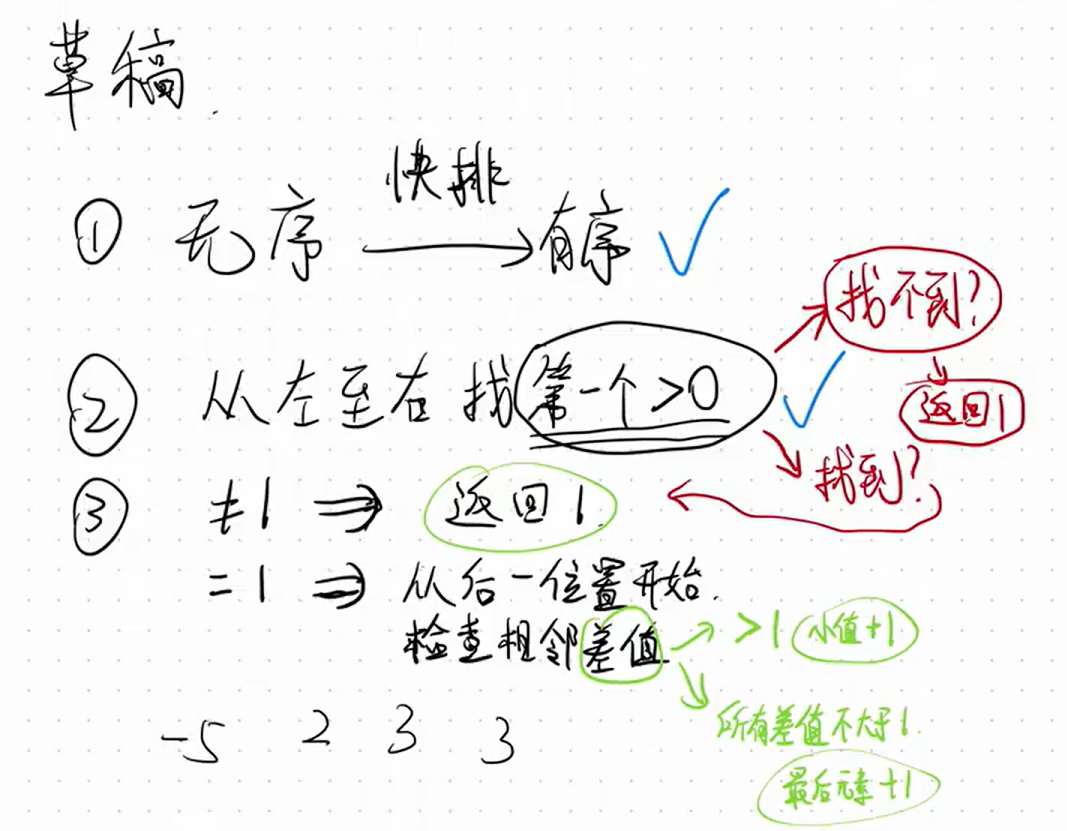 草稿.
① 无序 快排 → 有序 ✓
② 从左至右找第一个>0 ✓
找不到?
返回1
找到?
③ ≠1 ⇒ 返回1.
=1 ⇒ 从后一位置开始.
检查相邻差值.
>1 小值+1
所有差值不大于1.
最后元素+1
-5 2 3 3